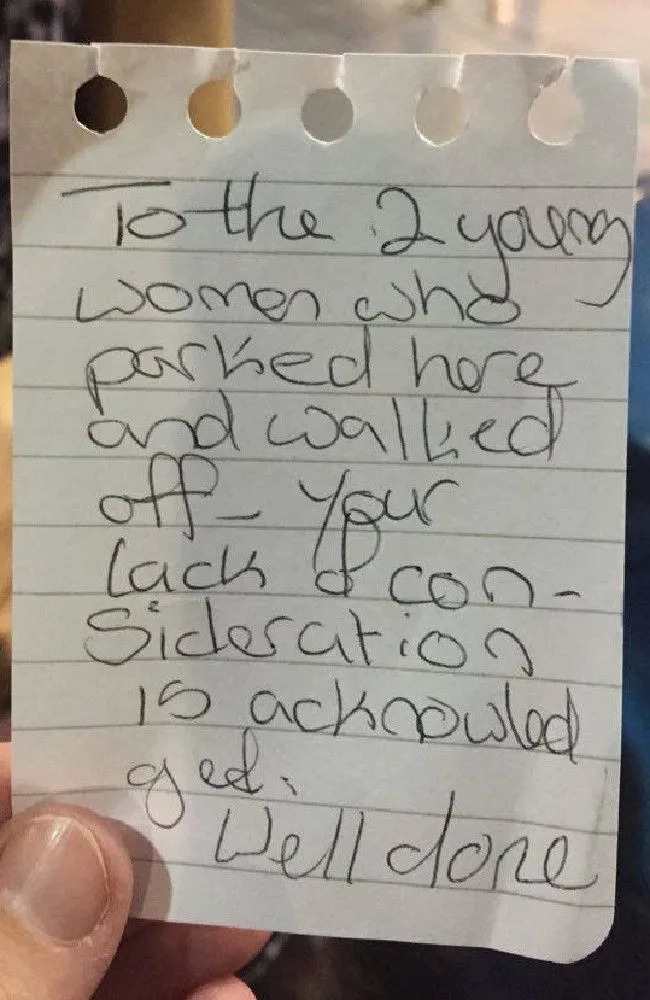 To the 2 young
women who
parked here
and walked
off - your
lack of con-
sideration
is acknowled
ged.
Well done